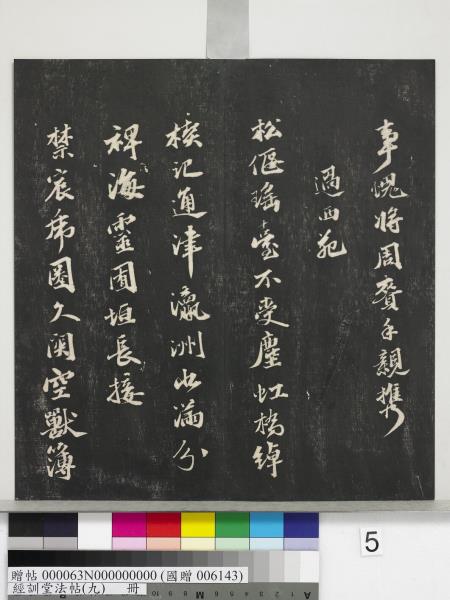 事愧將周賚手親携
過西苑
松偃瑤臺不受塵虹橋綽
楔記通津瀛洲水滿分
裨海靈囿垣長接
禁宸虎圈久閑空獸簿
5
贈帖 000063N000000000 (國贈 006143)
經訓堂法帖(九) 冊